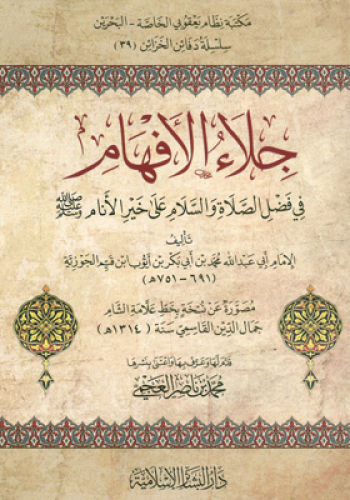 مكتبة نظام يعقوبي الخاصة - البحرين
سلسلة دفائن الخزائن (٣٩)
جِلَاءُ الأَفْهَام
فِي فَضْلِ الصَّلَاةِ وَالسَّلَامِ عَلَى خَيْرِ الأَنَام ﷺ
تَأْلِيف
الإمَام أبي عَبْد الله مُحَمَّد بن أبي بَكْر بن أيُّوب ابن قَيِّم الجَوْزِيَّة
(٦٩١-٧٥١هـ)
مُصَوَّرَة عَن نُسْخَة بِخَطِّ عَلَّامَة الشَّام
جَمَال الدِّين القَاسِمِيّ سَنَة (١٣١٤هـ)
قَدَّمَ لَهَا وَعَرَّفَ بِهَا وَاعْتَنَى بِنَشْرِهَا
محمد بن ناصر العجمي
دَارُ البَشَائِرِ الإِسْلَامِيَّة